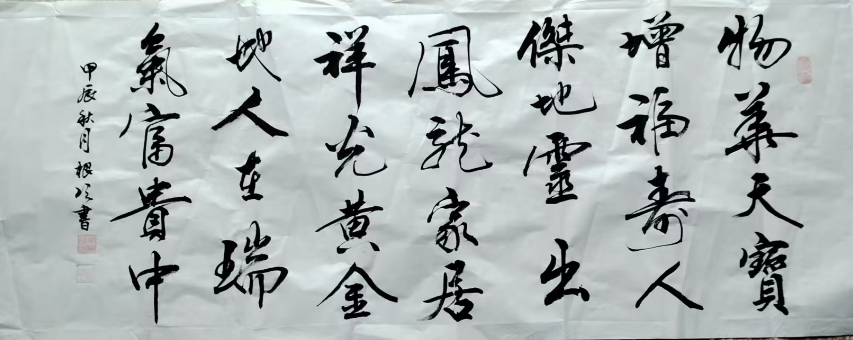 物華天寶
增福壽人
傑地靈出
鳳龍家居
祥光黃金
地人在瑞
氣富貴中
甲辰秋月根 書